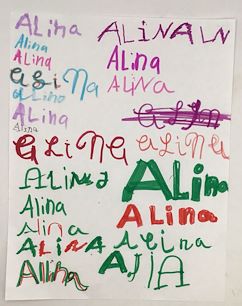 ALina
ALiNALN
Alina
Alina
Alina
ALiNa
aLiNa
Alina
ALina
Alina
aLiNa
aLiNa
ALiNa
ALina
Alina
Alina
alina
ALiNA
Alina
Alina
AliA